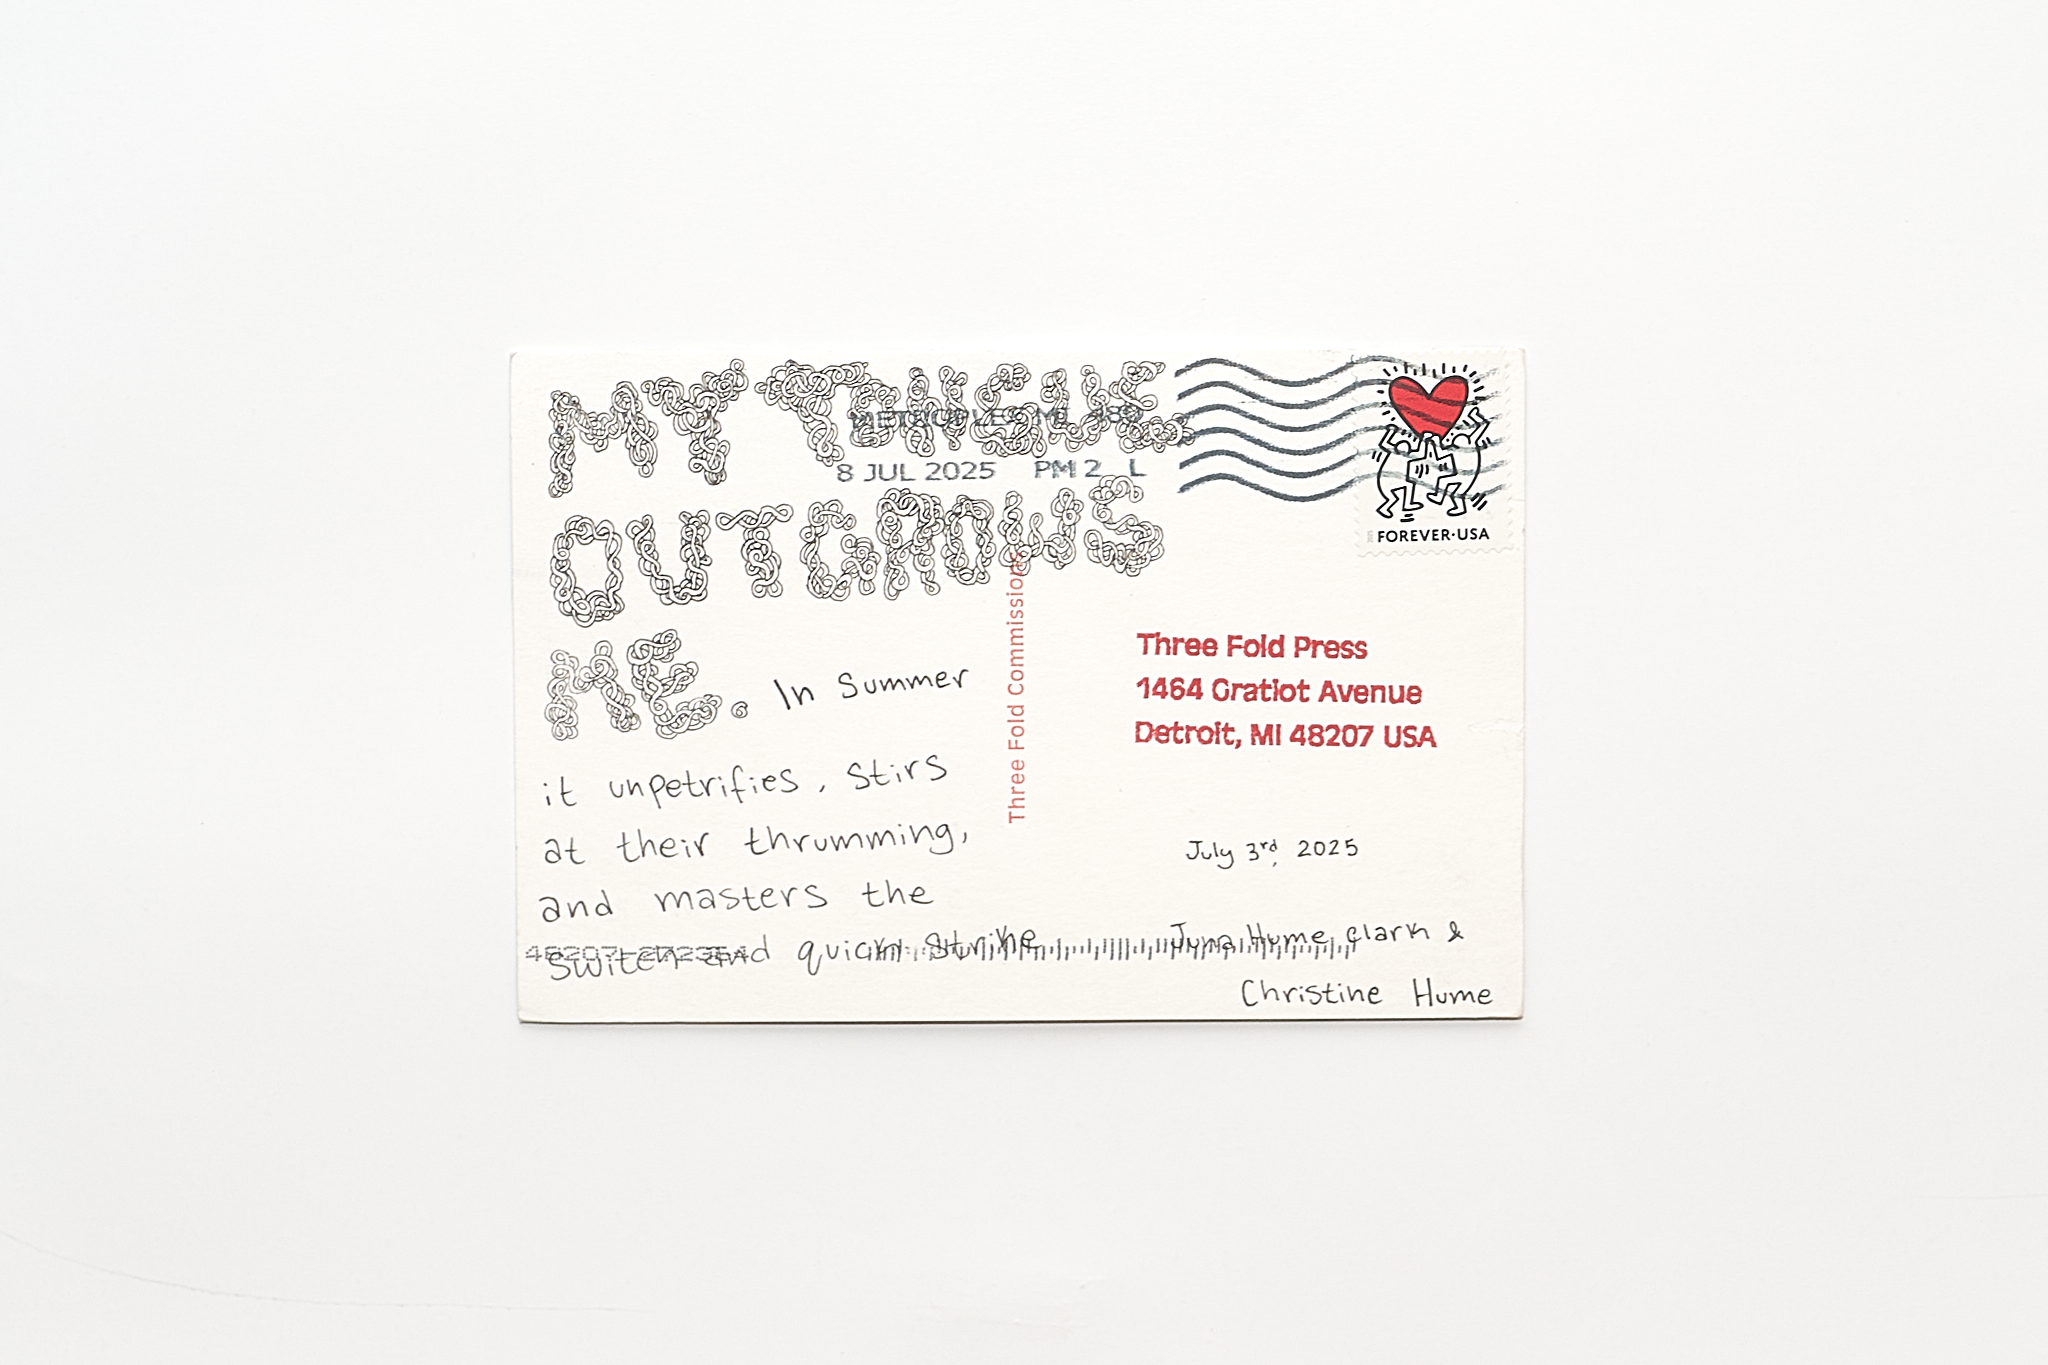 MY TONGUE
METROPLEX MI 480
8 JUL 2025 PM 2 L
OUTGROWS
ME. In Summer
it unpetrifies, stirs
at their thrumming,
and masters the
switch and quick strike
Three Fold Commissions
FOREVER·USA
Three Fold Press
1464 Gratiot Avenue
Detroit, MI 48207 USA
July 3rd, 2025
Juna Hume Clark &
Christine Hume